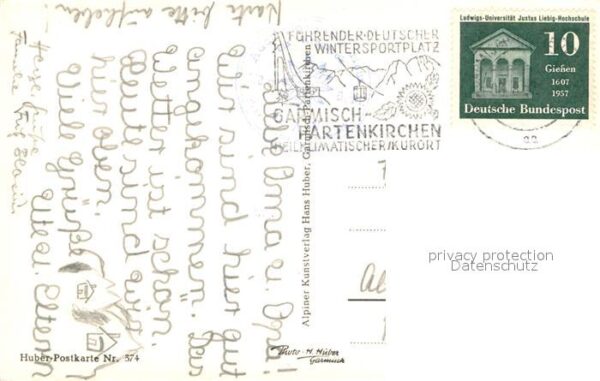 Karte bitte aufheben!
Liebe Oma u. Opa!
Wir sind hier gut
angekommen. Das
Wetter ist schön.
Heute sind wir
hier oben.
Viele Grüße
Ute u. Eltern
Herzl. Grüße
Familie
FÜHRENDER·DEUTSCHER
WINTERSPORTPLATZ
GARMISCH-
PARTENKIRCHEN
HEILKLIMATISCHER/KURORT
Ludwigs-Universität Justus Liebig-Hochschule
10
Gießen
1607
1957
Deutsche Bundespost
aa
Alpiner Kunstverlag Hans Huber, Garmisch-Partenkirchen
privacy protection
Datenschutz
Huber-Postkarte Nr. 574
Photo-H. Huber
Garmisch